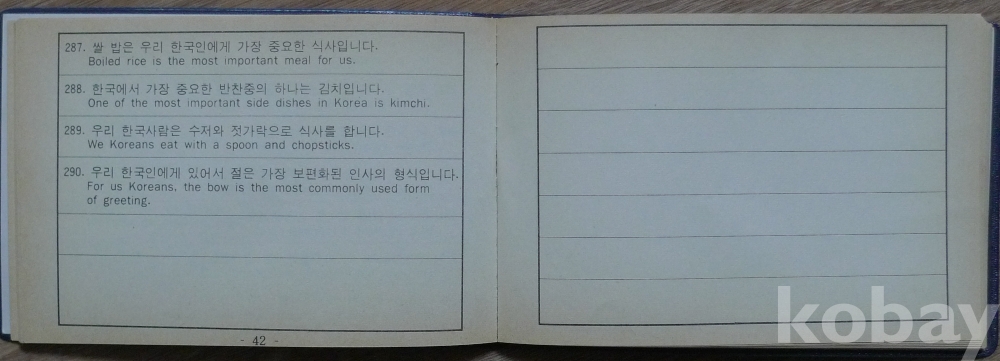 287. 쌀 밥은 우리 한국인에게 가장 중요한 식사입니다.
Boiled rice is the most important meal for us.
288. 한국에서 가장 중요한 반찬중의 하나는 김치입니다.
One of the most important side dishes in Korea is kimchi.
289. 우리 한국사람은 수저와 젓가락으로 식사를 합니다.
We Koreans eat with a spoon and chopsticks.
290. 우리 한국인에게 있어서 절은 가장 보편화된 인사의 형식입니다.
For us Koreans, the bow is the most commonly used form
of greeting.
- 42 -
kobay